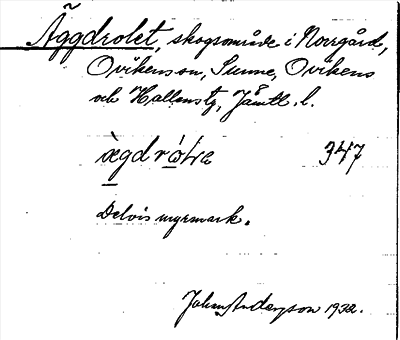 Äggdrolet, skogsområde i Norrgård,
Ovikens sn, Sunne, Ovikens
och Hallens tg, Jämtl. l.
ægdrót̵e 347
Delvis myrmark.
Johan Anderson 1932.